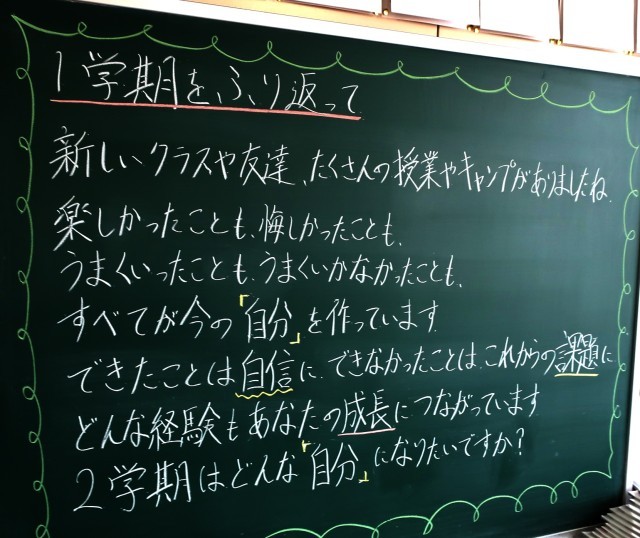 1学期をふり返って
新しいクラスや友達、たくさんの授業やキャンプがありましたね。
楽しかったことも、悔しかったことも、
うまくいったことも、うまくいかなかったことも、
すべてが今の「自分」を作っています。
できたことは自信に、できなかったことは、これからの課題に
どんな経験もあなたの成長につながっています
2学期はどんな「自分」になりたいですか?